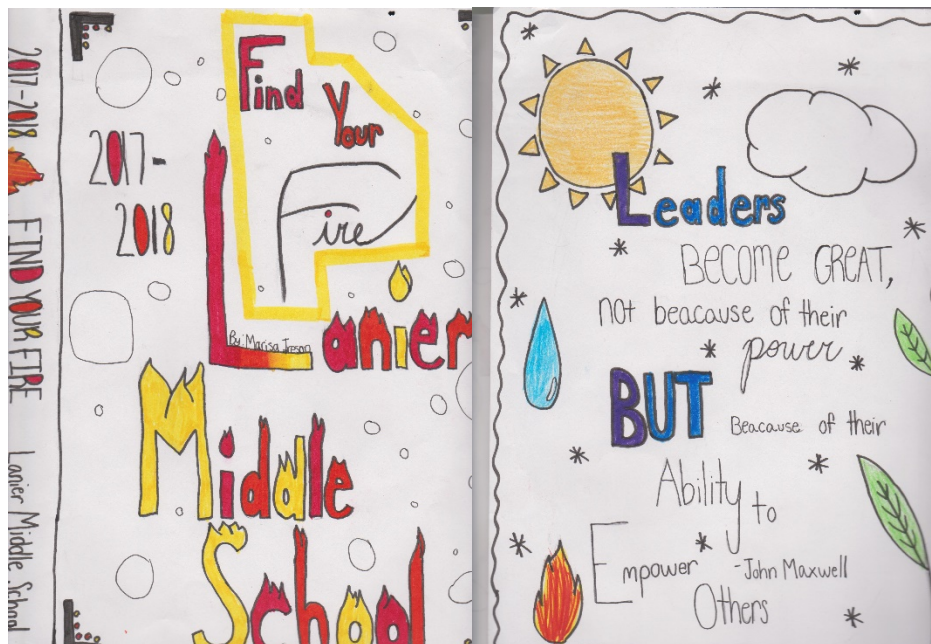 2017-2018 FIND YOUR FIRE Lanier Middle School
2017-
2018
Find
Your
Fire
By: Marisa Ireson
Lanier
Middle
School
Leaders
BECOME GREAT,
not beacause of their
power
BUT Beacause of their
Ability to
Empower -John Maxwell
Others